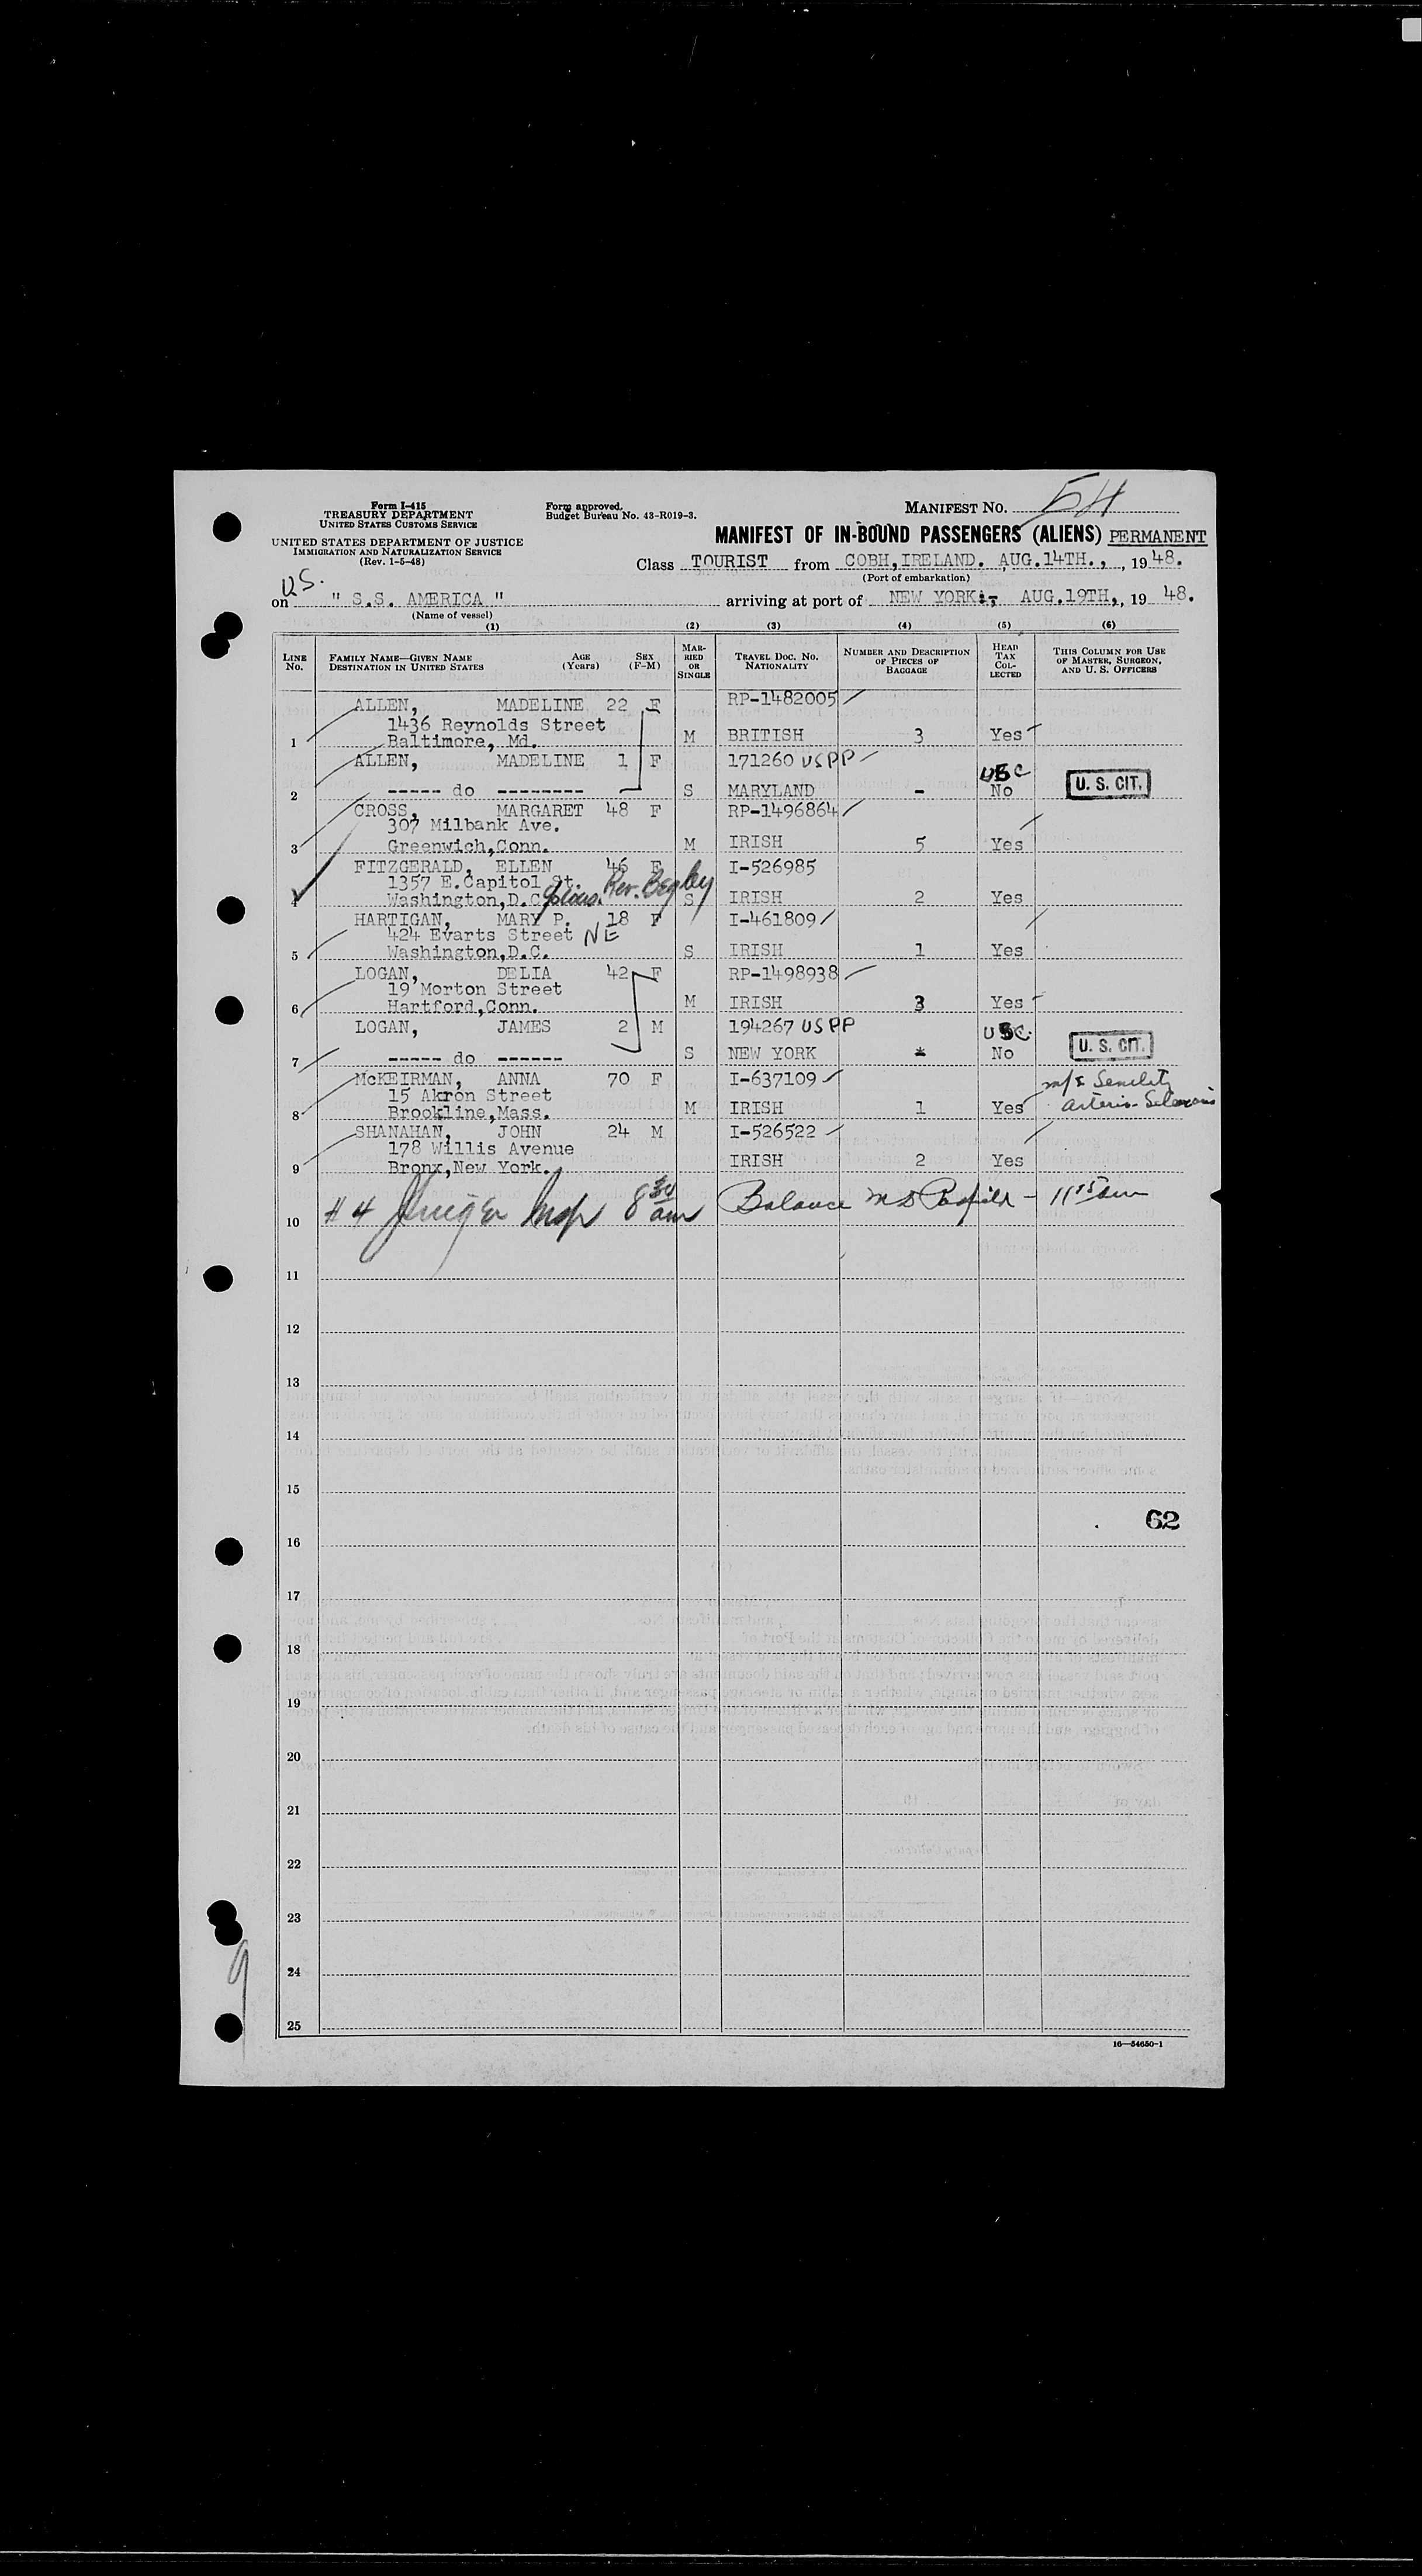 Form I-415
TREASURY DEPARTMENT
UNITED STATES CUSTOMS SERVICE
UNITED STATES DEPARTMENT OF JUSTICE
IMMIGRATION AND NATURALIZATION SERVICE
(Rev. 1-5-48)
Form approved.
Budget Bureau No. 43-R019-3.
MANIFEST NO. 54
MANIFEST OF IN-BOUND PASSENGERS (ALIENS) PERMANENT
Class TOURIST from COBH, IRELAND. AUG.14TH., , 1948.
(Port of embarkation)
US.
on " S.S. AMERICA " arriving at port of NEW YORK:- AUG.19TH., 19 48.
(Name of vessel)
(1) (2) (3) (4) (5) (6)
LINE NO. FAMILY NAME—GIVEN NAME DESTINATION IN UNITED STATES AGE (Years) SEX (F-M) MARRIED OR SINGLE TRAVEL DOC. NO. NATIONALITY NUMBER AND DESCRIPTION OF PIECES OF BAGGAGE HEAD TAX COLLECTED THIS COLUMN FOR USE OF MASTER, SURGEON, AND U. S. OFFICERS
ALLEN, MADELINE 22 F RP-1482005
1436 Reynolds Street
1 Baltimore, Md. M BRITISH 3 Yes
ALLEN, MADELINE 1 F 171260 USPP
USC U. S. CIT.
2 ----- do -------- S MARYLAND - No
CROSS, MARGARET 48 F RP-1496864
307 Milbank Ave.
3 Greenwich,Conn. M IRISH 5 Yes
FITZGERALD, ELLEN 46 F I-526985
1357 E.Capitol St. Rev. Begley
4 Washington,D.C. S IRISH 2 Yes
HARTIGAN, MARY P. 18 F I-461809
424 Evarts Street NE
5 Washington,D.C. S IRISH 1 Yes
LOGAN, DELIA 42 F RP-1498938
19 Morton Street
6 Hartford,Conn. M IRISH 3 Yes
LOGAN, JAMES 2 M 194267 USPP
USC. U. S. CIT.
7 ----- do ------ S NEW YORK * No
McKEIRMAN, ANNA 70 F I-637109 Senility
15 Akron Street
8 Brookline,Mass. M IRISH 1 Yes
SHANAHAN, JOHN 24 M I-526522
178 Willis Avenue
9 Bronx,New York. IRISH 2 Yes
10 # 4 Insp 8 30 am Balance 11 15 am
11
12
13
14
15
62
16
17
18
19
20
21
22
23
24
9
25
16—54650-1